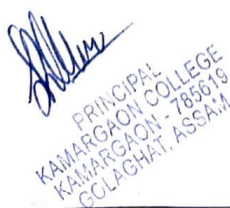 PRINCIPAL
KAMARGAON COLLEGE
KAMARGAON - 785619
GOLAGHAT, ASSAM